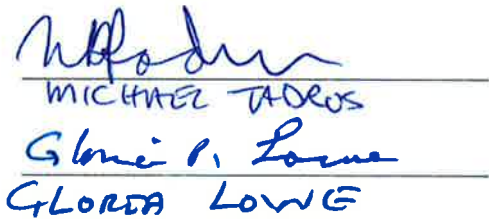 MICHAEL TADROS
Gloria P. Lowe
GLORIA LOWE